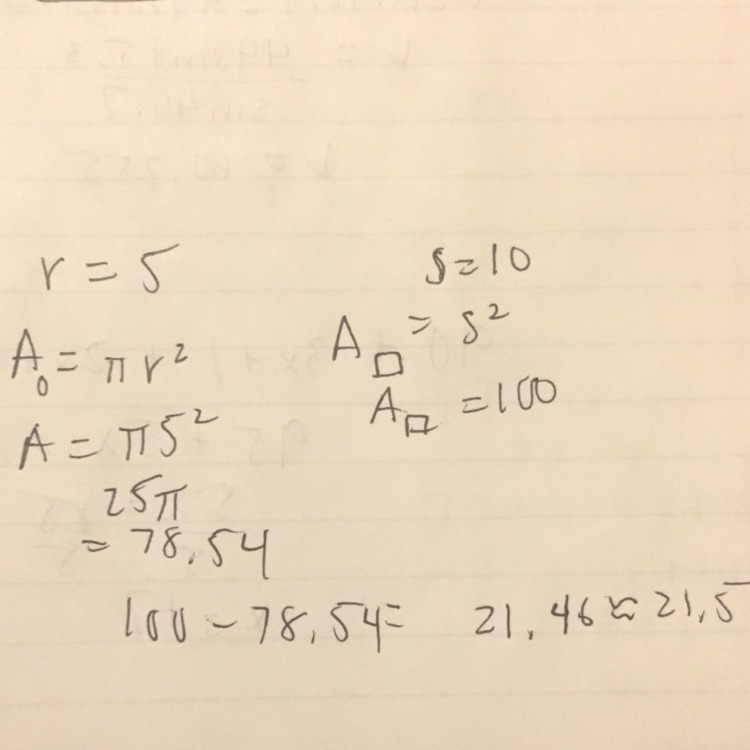 r = 5
A○ = πr²
A = π5²
25π
= 78.54
s=10
A□ = s²
A□ = 100
100 − 78.54= 21.46 ≈ 21.5